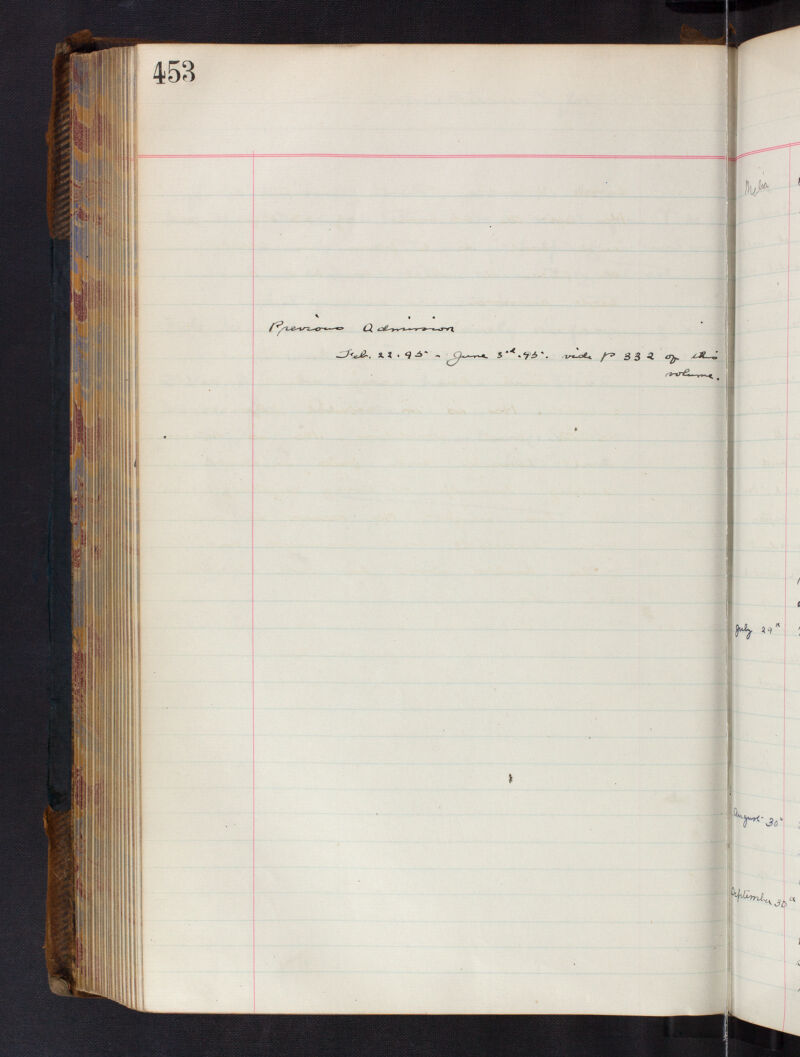 453
Previous Admission
Feb. 22. 95 - June 3rd. 95. vide P 332 of this
volume.
July 29th
August 30th
September 30th